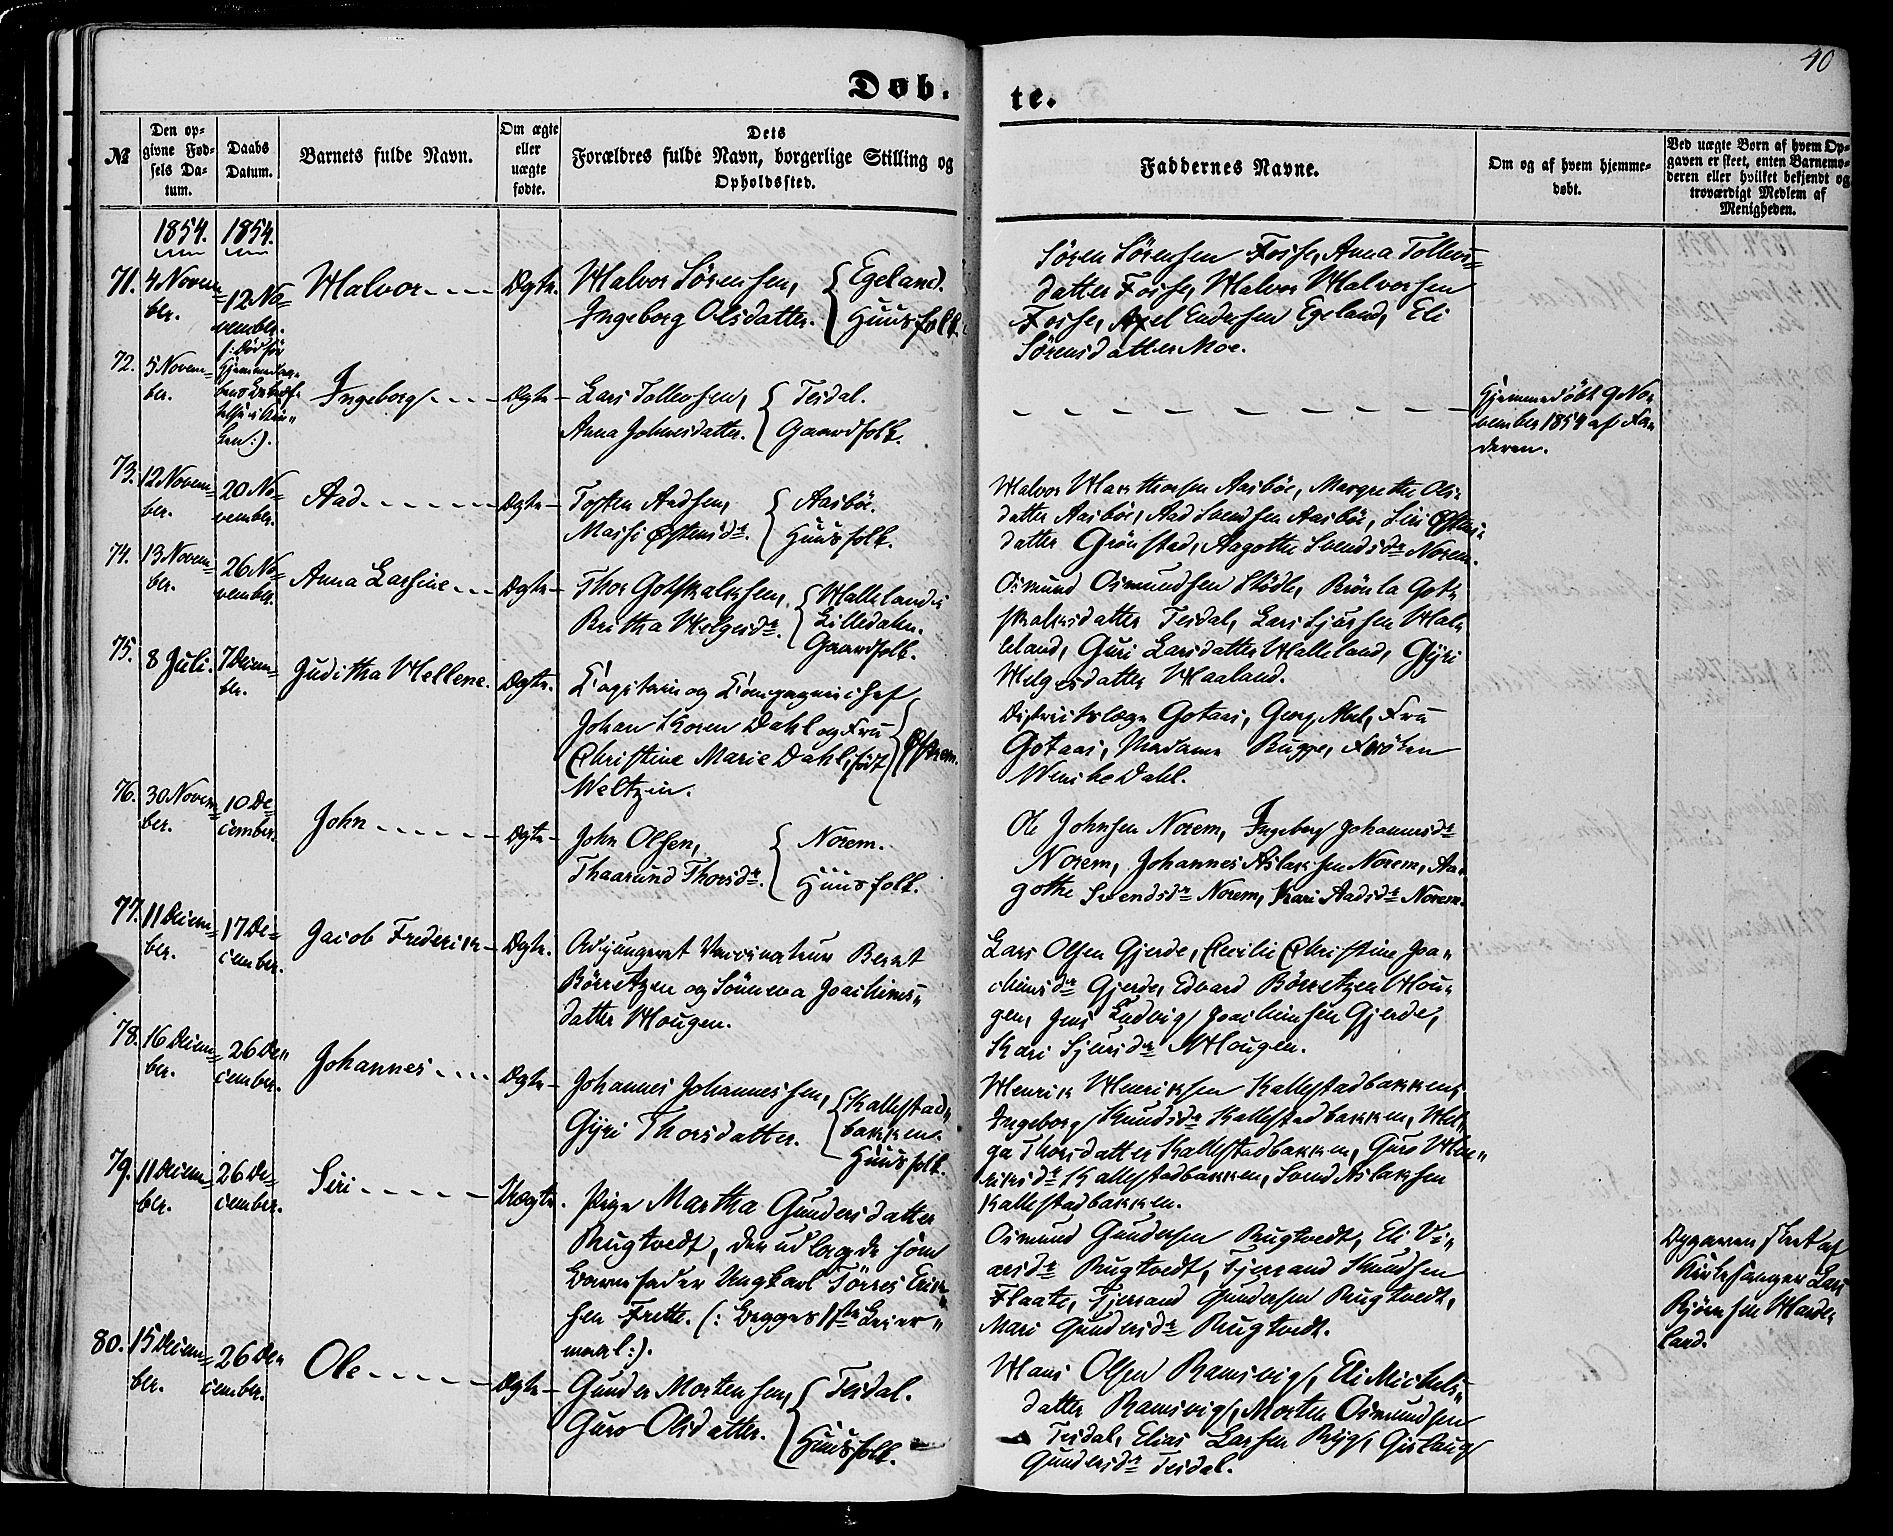 40
Døb. te.
№
Den op-
givne Fød-
sels Da-
tum.
Daabs
Datum.
Barnets fulde Navn.
Om ægte
eller
uægte
fødte.
Dets
Forældres fulde Navn, borgerlige Stilling og
Opholdssted.
Faddernes Navne.
Om og af hvem hjemme-
døbt.
Ved uægte Børn af hvem Op-
gaven er skeet, enten Barnemo-
deren eller hvilket bekjendt og
troværdigt Medlem af
Menigheden.
1854. 1854.
71. 4 Novem=
ber.
12 No=
vember.
Halvor
Ægte.
Halvor Sörensen,
Ingeborg Olsdatter.
Egeland.
Huusfolk.
Sören Sörensen Fosse, Anna Tollevs=
datter Fosse, Halvor Halvorsen
Fosse, Axel Endresen Egeland, Eli
Sörensdatter Moe.
72. 5 Novem=
ber.
Ingeborg
Ægte
Lars Tollevsen,
Anna Johnesdatter.
Tesdal.
Gaardfolk.
Hjemmedöbt 9 No=
vember 1854 af Fa=
deren.
73. 12 Novem=
ber.
20 No=
vember.
Aad
Ægte
Torsten Aadsen,
Massi Østensdr.
Aasböe.
Huusfolk.
Halvor Halvorsen Aasböe, Margrethe Ols=
datter Aasböe, Aad Svendsen Aasböe, Siri Østens=
datter Grönstad, Aagothe Svendsdr Norem.
74. 13 Novem=
ber.
26 No=
vember.
Anna Larsine
Ægte
Thor Gotskalksen,
Britha Helgesdr.
Hallelands
Lilledalen.
Gaardfolk.
Osmund Osmundsen Stödle, Brönla Got=
skalksdatter Tesdal, Lars Sjursen Hal=
leland, Guri Larsdatter Halleland, Gyri
Helgesdatter Haaland.
75. 8 Juli.
7 Decem=
ber.
Juditha Hellene.
Ægte.
Capitain og Compagnichef
Johan Koren Dahl og Fru
Christine Marie Dahl, født
Weltzin.
Østrem.
Distriktslæge Gotaas, Georg Abel, Fru
Gotaas, Madame Bugge, Fröken
Wenche Dahl.
76. 30 Novem=
ber.
10 De=
cember.
John
Ægte
John Olsen,
Thaarund Thorsdr.
Norem.
Huusfolk.
Ole Johnsen Norem, Ingeborg Johannesdr
Norem, Johannes Aslaksen Norem, Aa=
gothe Svendsdr Norem, Kari Aadsdr Norem.
77. 11 Decem=
ber.
17 De=
cember.
Jacob Frederik
Ægte.
Adjungeret Vaccinateur Bernt
Börretzen og Sönneva Joachims=
datter Hougen.
Lars Olsen Gjerde, Cecilie Christine Joa=
chimsdr Gjerde, Edvard Börretzen Hou=
gen, Jens Ludvig Joachimsen Gjerde,
Kari Sjursdr Hougen.
78. 16 Decem=
ber.
26 De=
cember.
Johannes
Ægte
Johannes Johannessen,
Gyri Thorsdatter.
Kallestad=
bakken.
Huusfolk.
Henrik Henriksen Kallestadbakken,
Ingeborg Knudsdr Kallestadbakken, Hel=
ga Thorsdatter Kallestadbakken, Guro Hen=
riksdr Kallestadbakken, Svend Aslaksen
Kallestadbakken.
79. 11 Decem=
ber.
26 De=
cember.
Siri
Uægte.
Pige Martha Gundersdatter
Rugtvedt, der udlagde som
Barnefader Ungkarl Törres Erik=
sen Frette. (: Begges 1ste Leier=
maal:).
Osmund Gundersen Rugtvedt, Eli Vi=
arsdr Rugtvedt, Tjerrand Knudsen
Flaate, Tjerrand Gundersen Rugtvedt,
Mari Gundersdr Rugtvedt.
Opgaven skeet af
Kirkesanger Lars
Björnsen Halle=
land.
80. 15 Decem=
ber.
26 De=
cember.
Ole
Ægte
Gunder Mortensen,
Guro Olsdatter.
Tesdal.
Huusfolk.
Hans Olsen Ramsvig, Eli Mickels=
datter Ramsvig, Morten Osmundsen
Tesdal, Elias Larsen Ryg, Gislaug
Gundersdr Tesdal.